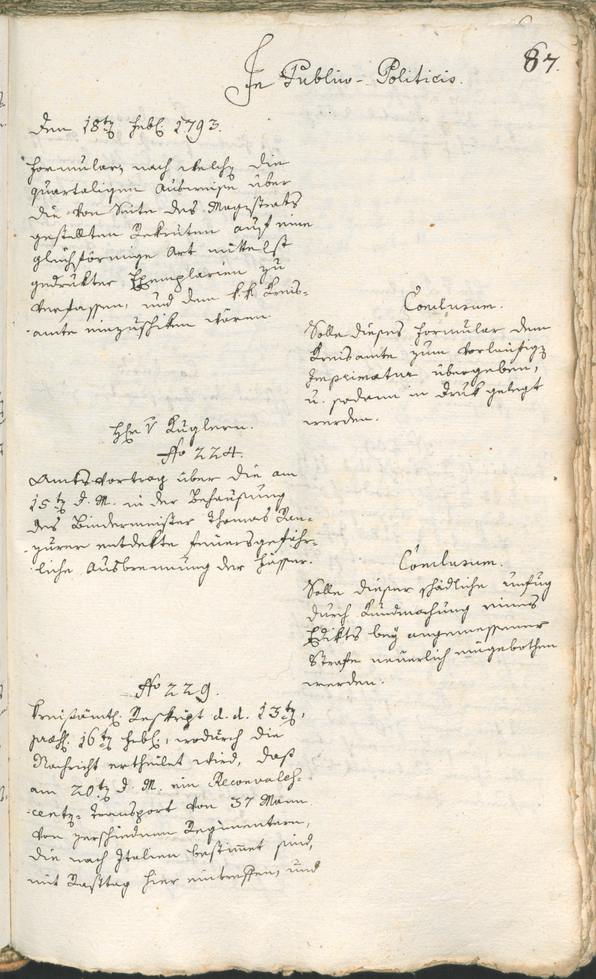 87.
In Publico-Politicis.
den 18ten Febr. 1793.
Formulars nach welchen die
quartaligen Ausweise über
die von Seite des Magistrats
gestellten Rekruten auf eine
gleichförmige Art mittelst
gedrukter Exemplarien zu
verfassen, und dem k. k. Kreis-
amte einzuschiken wären
Conclusum.
Solle dieses Formular dem
Kreisamte zum vorläufigen
Imprimatur übergeben,
u. sodann in Druk gelegt
werden.
H. v. Kuglern.
No 224.
Amtsvortrag über die am
15ten d. M. in der Behausung
des Bindermeister Thomas
entdekte feuersgefähr-
liche Ausbrennung der Fässer.
Conclusum.
Solle dieser schädliche Unfug
durch Kundmachung eines
Edikts bey angemessener
Strafe neuerlich eingebothen
werden.
No 229.
Kreisämtl. Reskript d. d. 13ten,
praes. 16ten Febr., wodurch die
Nachricht ertheilet wird, daß
am 20ten d. M. ein Reconvales-
centen-Transport von 37 Mann
von verschiednen Regimentern,
die nach Italien bestimmt sind,
mit Rasttag hier eintreffen, und